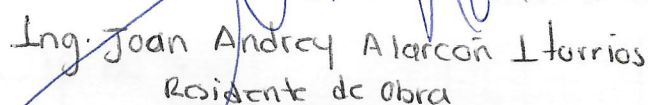 Ing. Joan Andrey Alarcon Iturrios
Residente de Obra